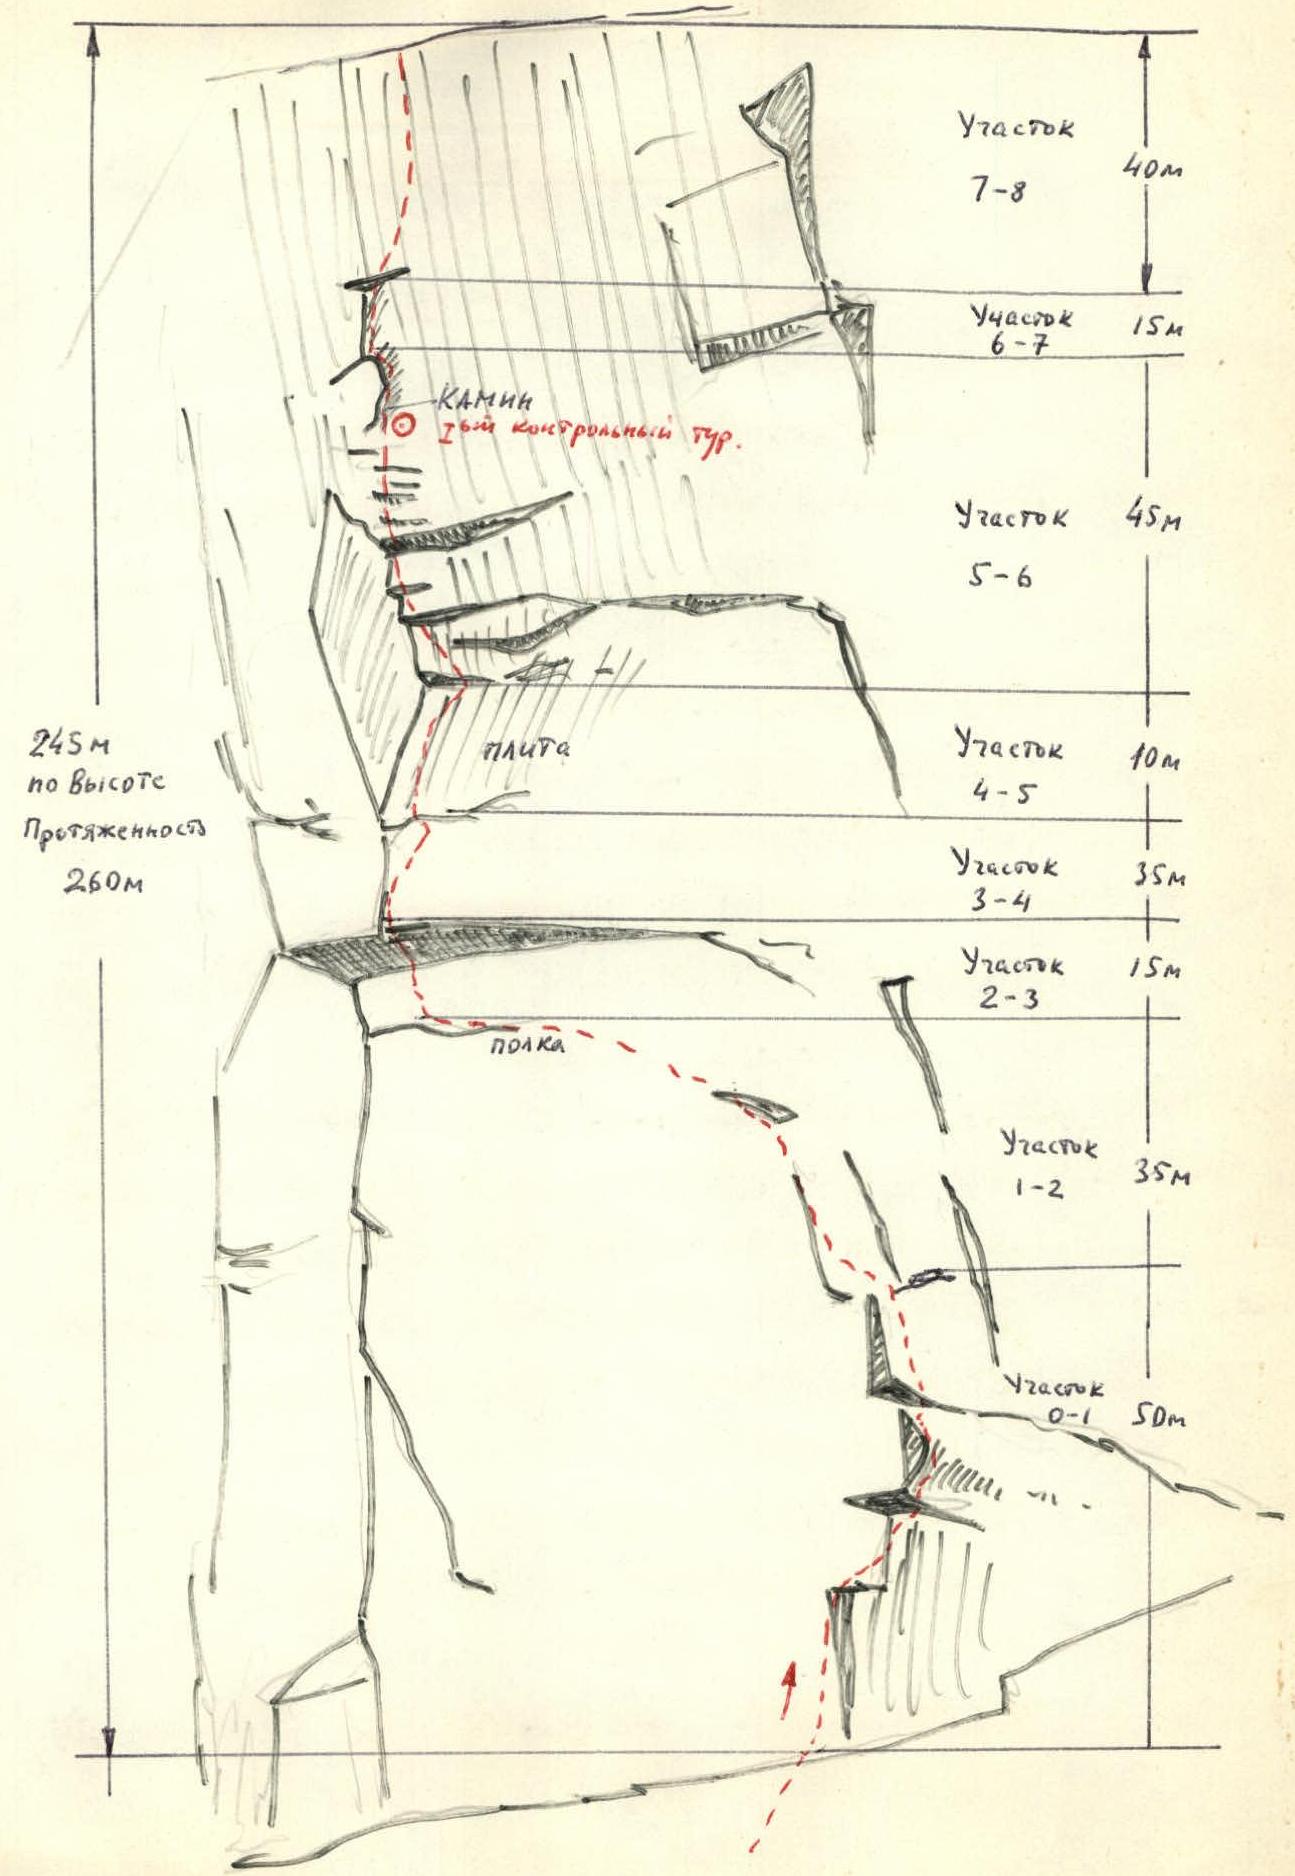 Участок
7-8
40м
Участок
6-7
15м
КАМИН
Iый контрольный тур.
Участок
5-6
45м
245м
по высоте
Протяженность
260м
плита
Участок
4-5
10м
Участок
3-4
35м
Участок
2-3
15м
полка
Участок
1-2
35м
Участок
0-1
50м